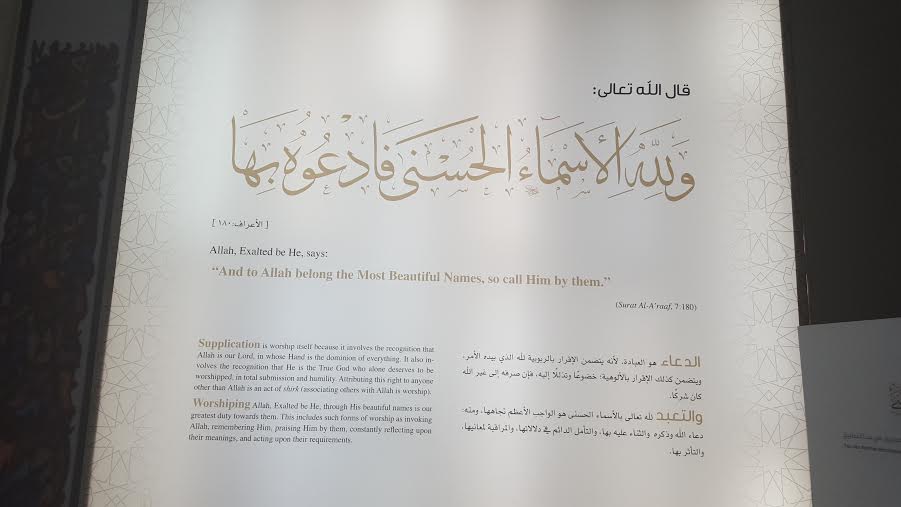 قال الله تعالى:
وَلِلَّهِ الْأَسْمَاءُ الْحُسْنَى فَادْعُوهُ بِهَا
[ الأعراف: ١٨٠ ]
Allah, Exalted be He, says:
“And to Allah belong the Most Beautiful Names, so call Him by them.”
(Surat Al-A'raaf, 7:180)
Supplication is worship itself because it involves the recognition that
Allah is our Lord, in whose Hand is the dominion of everything. It also in-
volves the recognition that He is the True God who alone deserves to be
worshipped, in total submission and humility. Attributing this right to anyone
other than Allah is an act of shirk (associating others with Allah is worship).
Worshiping Allah, Exalted be He, through His beautiful names is our
greatest duty towards them. This includes such forms of worship as invoking
Allah, remembering Him, praising Him by them, constantly reflecting upon
their meanings, and acting upon their requirements.
الدعاء هو العبادة، لأنه يتضمن الإقرار بالربوبية لله الذي بيده الأمر،
ويتضمن كذلك الإقرار بالألوهية؛ خضوعًا وتذللًا إليه، فإن صرفه إلى غير الله
كان شركًا.
والتعبد لله تعالى بالأسماء الحسنى هو الواجب الأعظم تجاهها، ومنه:
دعاء الله وذكره والثناء عليه بها، والتأمل الدائم في دلالاتها، والمراقبة لمعانيها،
والتأثر بها.